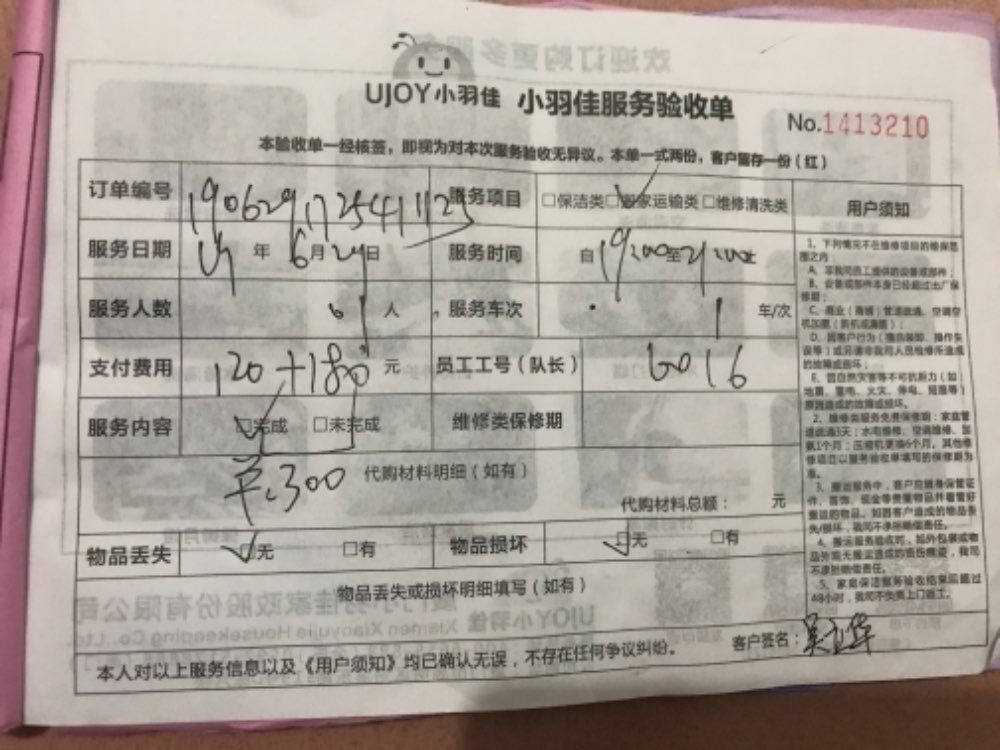 UJOY小羽佳 小羽佳服务验收单
No.1413210
本验收单一经核签，即视为对本次服务验收无异议。本单一式两份，客户留存一份（红）
订单编号 190629172541123 服务项目 □保洁类 □搬家运输类 □维修清洗类 用户须知
服务日期 19年6月29日 服务时间 自19:00至21:00止
服务人数 人 服务车次 1 车/次
支付费用 120+180 元 员工工号（队长） 6016
服务内容 □完成 □未完成 维修类保修期
¥:300 代购材料明细（如有）
代购材料总额： 元
物品丢失 □无 □有 物品损坏 □无 □有
物品丢失或损坏明细填写（如有）
客户签名：
本人对以上服务信息以及《用户须知》均已确认无误，不存在任何争议纠纷。
1、下列情况不在维修项目的维保范
围之内
A、非我司员工提供的设备或部件；
B、设备或部件本身已经超过出厂保
修期；
C、商业（商铺）管道疏通、空调空
机加氟（拆机或漏氟）；
D、因客户行为（擅自装卸、操作失
误等）或另请非我司人员维修所造成
的故障或损坏；
E、因自然灾害等不可抗拒力（如：
地震、雷电、火灾、停电、短路等）
原因造成的故障或损坏。
2、维修类服务免费保修期：家庭管
道疏通3天；水电维修、空调维修、加
氨1个月；压缩机更换6个月。其他维
修项目以服务验收单填写的保修期为
准。
3、搬运服务中，客户应随身保管证
件、首饰、现金等贵重物品并看管好
重目的物品。如因客户造成的物品丢
失/损坏，我司不承担赔偿责任。
4、搬运服务验收时，如外包装或物
品外观无搬运造成的损伤痕迹，我司
不承担赔偿责任。
5、家庭保洁服务验收结束后超过
48小时，我司不负责上门返工。